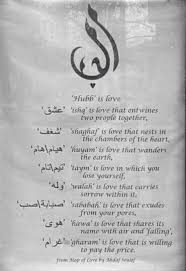 الحب
'Hubb' is love
'عشق' 'ishq' is love that entwines
two people together,
'شغف' 'shaghaf' is love that nests in
the chambers of the heart,
'هيام/هام' 'huyam' is love that wanders
the earth,
'تيم/تام' 'taym' is love in which you
lose yourself,
'وله' 'walah' is love that carries
sorrow within it,
'صبابة/صب' 'sababah' is love that exudes
from your pores,
'هوى' 'hawa' is love that shares its
name with air and 'falling',
'غرام' 'gharam' is love that is willing
to pay the price.
from Map of Love by Ahdaf Soueif